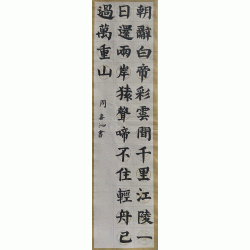 朝辭白帝彩雲間千里江陵一
日還兩岸猿聲啼不住輕舟已
過萬重山
周沁書